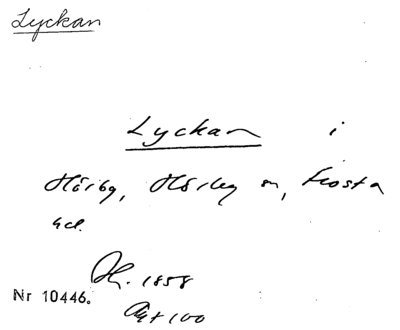 Lyckan
Lyckan i
Hörby, Hörby sn, Frosta
hd.
1858
Nr 10446.
Akt 100